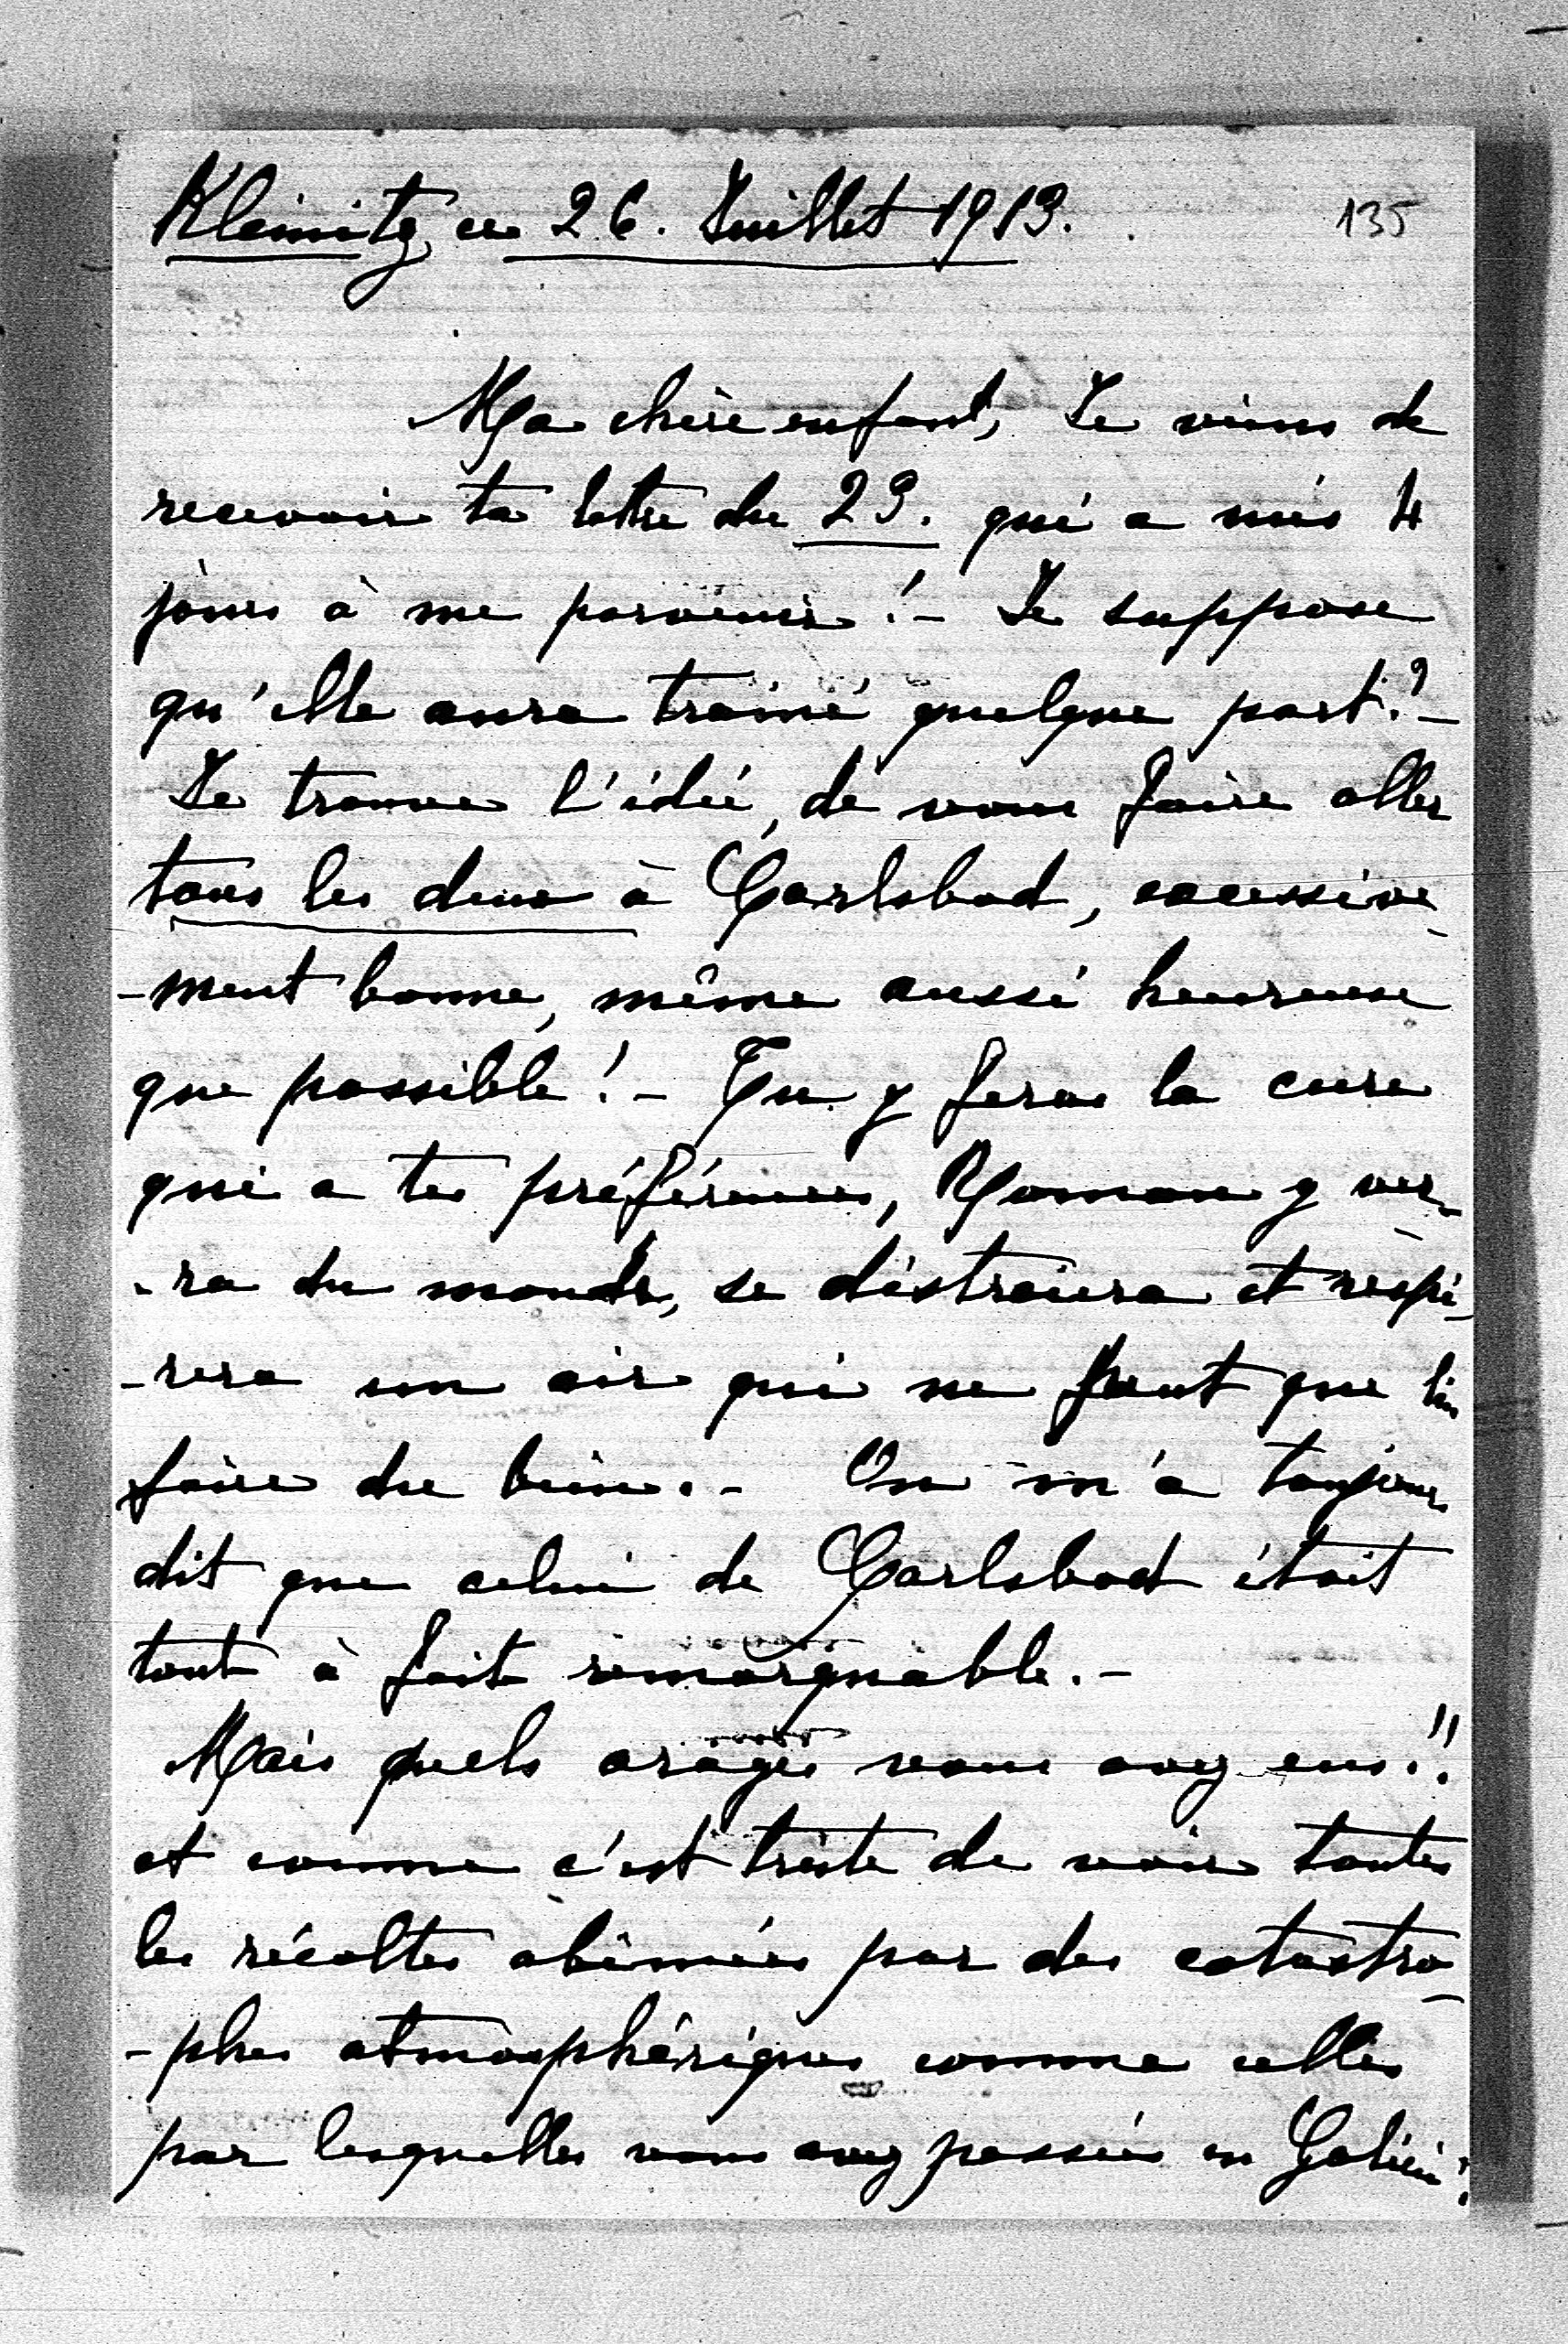 Kleinitz, ce 26. Juillet 1913. 135
Ma chère enfant, Je viens de
recevoir ta lettre du 23. qui a mis 4
jours à me parvenir!- Je suppose
qu'elle aura trainé quelque part?-
Je trouve l'idée, de vous faire aller
tous les deux à Carlsbad, excessive-
-ment bonne, même aussi heureuse
que possible!- Tu y feras la cure
qui a tes préférences, Roman y ver-
-ra du monde, se distraiera et respi-
-rera un air qui ne peut que lui
faire du bien.- On m'a toujours
dit que celui de Carlsbad était
tout à fait remarquable.-
Mais quels orages vous avez eus!!
et comme c'est triste de voir toutes
les récoltes abimées par des catastro-
-phes atmosphériques comme celles
par lesquelles vous avez passées en Galicie!